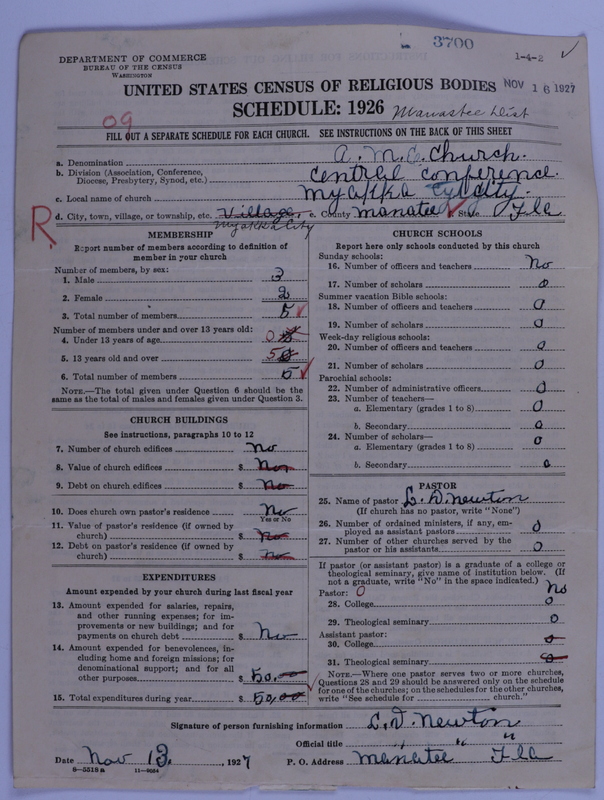 3700
1-4-2 ✓
DEPARTMENT OF COMMERCE
BUREAU OF THE CENSUS
WASHINGTON
UNITED STATES CENSUS OF RELIGIOUS BODIES
NOV 16 1927
SCHEDULE: 1926 Manatee Dist
09
FILL OUT A SEPARATE SCHEDULE FOR EACH CHURCH. SEE INSTRUCTIONS ON THE BACK OF THIS SHEET
a. Denomination A. M. E. Church.
b. Division (Association, Conference, Diocese, Presbytery, Synod, etc.) Central Conference.
c. Local name of church Myakka City.
d. City, town, village, or township, etc. Village, e. County Manatee State Fla
Myakka City
R
MEMBERSHIP
Report number of members according to definition of
member in your church
Number of members, by sex:
1. Male 3
2. Female 2
3. Total number of members 5
Number of members under and over 13 years old:
4. Under 13 years of age 0
5. 13 years old and over 5
6. Total number of members 5
NOTE.—The total given under Question 6 should be
same as the total of males and females given under Question 3.
CHURCH BUILDINGS
See instructions, paragraphs 10 to 12
7. Number of church edifices No
8. Value of church edifices $ No
9. Debt on church edifices $ No
10. Does church own pastor's residence No
Yes or No
11. Value of pastor's residence (if owned by
church) $ No
12. Debt on pastor's residence (if owned by
church) $ No
EXPENDITURES
Amount expended by your church during last fiscal year
13. Amount expended for salaries, repairs,
and other running expenses; for im-
provements or new buildings; and for
payments on church debt $ No
14. Amount expended for benevolences, in-
cluding home and foreign missions; for
denominational support; and for all
other purposes $ 50.00
15. Total expenditures during year $ 50.00
CHURCH SCHOOLS
Report here only schools conducted by this church
Sunday schools:
16. Number of officers and teachers No
17. Number of scholars 0
Summer vacation Bible schools:
18. Number of officers and teachers 0
19. Number of scholars 0
Week-day religious schools:
20. Number of officers and teachers 0
21. Number of scholars 0
Parochial schools:
22. Number of administrative officers 0
23. Number of teachers—
a. Elementary (grades 1 to 8) 0
b. Secondary 0
24. Number of scholars—
a. Elementary (grades 1 to 8) 0
b. Secondary 0
PASTOR
25. Name of pastor L. D. Newton
(If church has no pastor, write "None")
26. Number of ordained ministers, if any, em-
ployed as assistant pastors 0
27. Number of other churches served by the
pastor or his assistants 0
If pastor (or assistant pastor) is a graduate of a college or
theological seminary, give name of institution below. (If
not a graduate, write "No" in the space indicated.)
Pastor: 0 No
28. College 0
29. Theological seminary 0
Assistant pastor:
30. College 0
31. Theological seminary 0
NOTE.—Where one pastor serves two or more churches,
Questions 28 and 29 should be answered only on the schedule
for one of the churches; on the schedules for the other churches,
write "See schedule for church."
Signature of person furnishing information L. D. Newton
Official title " " "
Date Nov 13, 1927 P. O. Address Manatee Fla
6—5518 a 11—9064